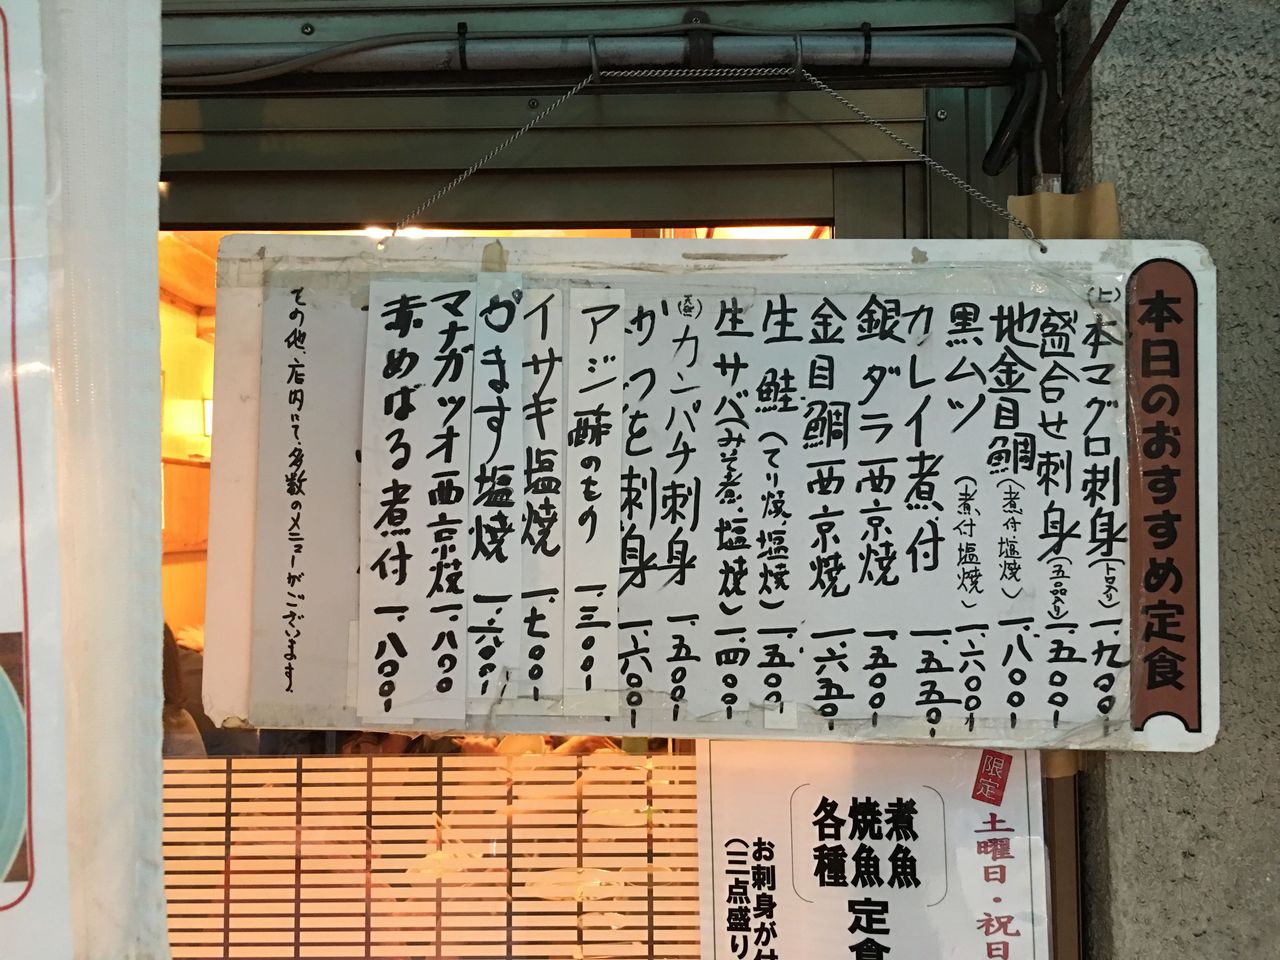 本日のおすすめ定食
(上)本マグロ刺身(トロ入り)一、九〇〇-
盛合せ刺身(五品入り)一、五〇〇-
地金目鯛(煮付、塩焼)一、八〇〇-
黒ムツ(煮付塩焼)一、六〇〇-
カレイ煮付一、五五〇-
銀ダラ西京焼一、五〇〇-
金目鯛西京焼一、六五〇-
生鮭(てり焼、塩焼)一、五〇〇-
生サバ(みそ煮、塩焼)一、四〇〇-
カンパチ刺身一、五〇〇-
かつを刺身一、六〇〇-
アジ酢のもの一、三〇〇-
イサキ塩焼一、七〇〇-
かます塩焼一、六〇〇-
マナガツオ西京焼一、八〇〇
赤めばる煮付一、八〇〇-
その他、店内にて多数のメニューがございます。
限定
土曜日・祝日
煮魚
焼魚
各種
定食
お刺身が付
(三点盛り